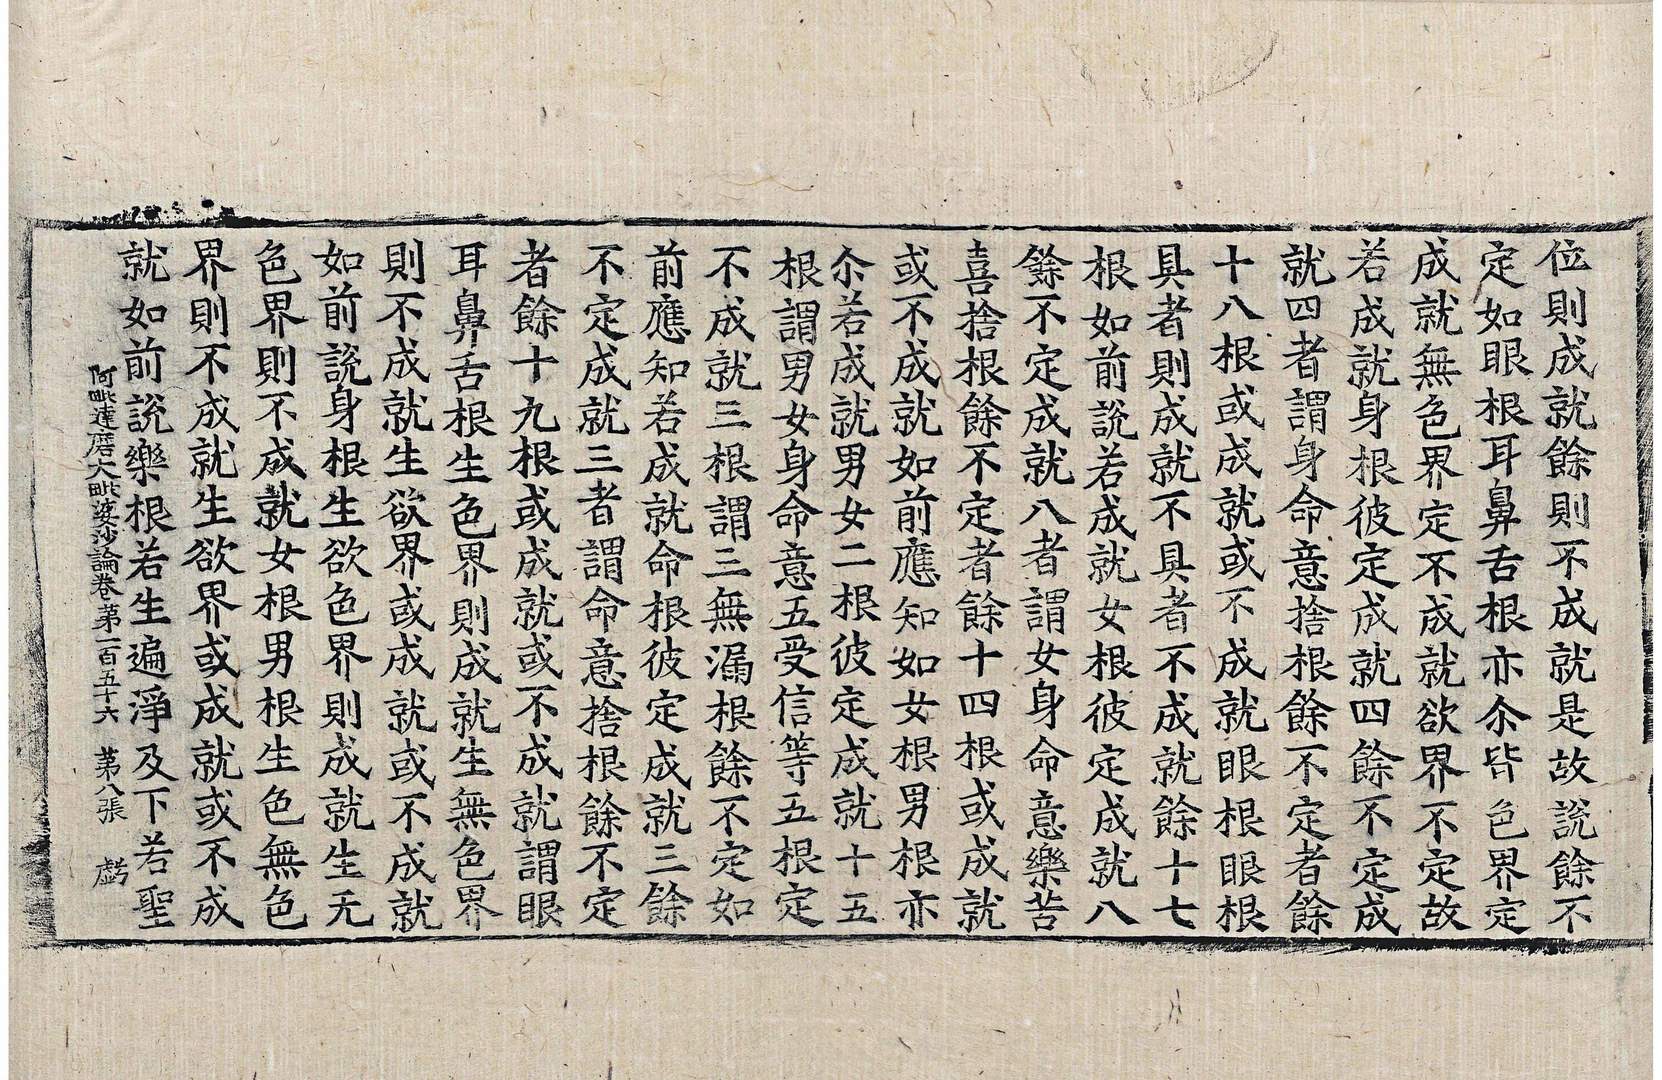 位則成就餘則不成就是故說餘不
定如眼根耳鼻舌根亦尒皆色界定
成就無色界定不成就欲界不定故
若成就身根彼定成就四餘不定成
就四者謂身命意捨根餘不定者餘
十八根或成就或不成就眼根眼根
具者則成就不具者不成就餘十七
根如前說若成就女根彼定成就八
餘不定成就八者謂女身命意樂苦
喜捨根餘不定者餘十四根或成就
或不成就如前應知如女根男根亦
尒若成就男女二根彼定成就十五
根謂男女身命意五受信等五根定
不成就三根謂三無漏根餘不定如
前應知若成就命根彼定成就三餘
不定成就三者謂命意捨根餘不定
者餘十九根或成就或不成就謂眼
耳鼻舌根生色界則成就生無色界
則不成就生欲界或成就或不成就
如前說身根生欲色界則成就生无
色界則不成就女根男根生色無色
界則不成就生欲界或成就或不成
就如前說樂根若生遍淨及下若聖
阿毗達磨大毗婆沙論卷第一百五十六 第八張 虧